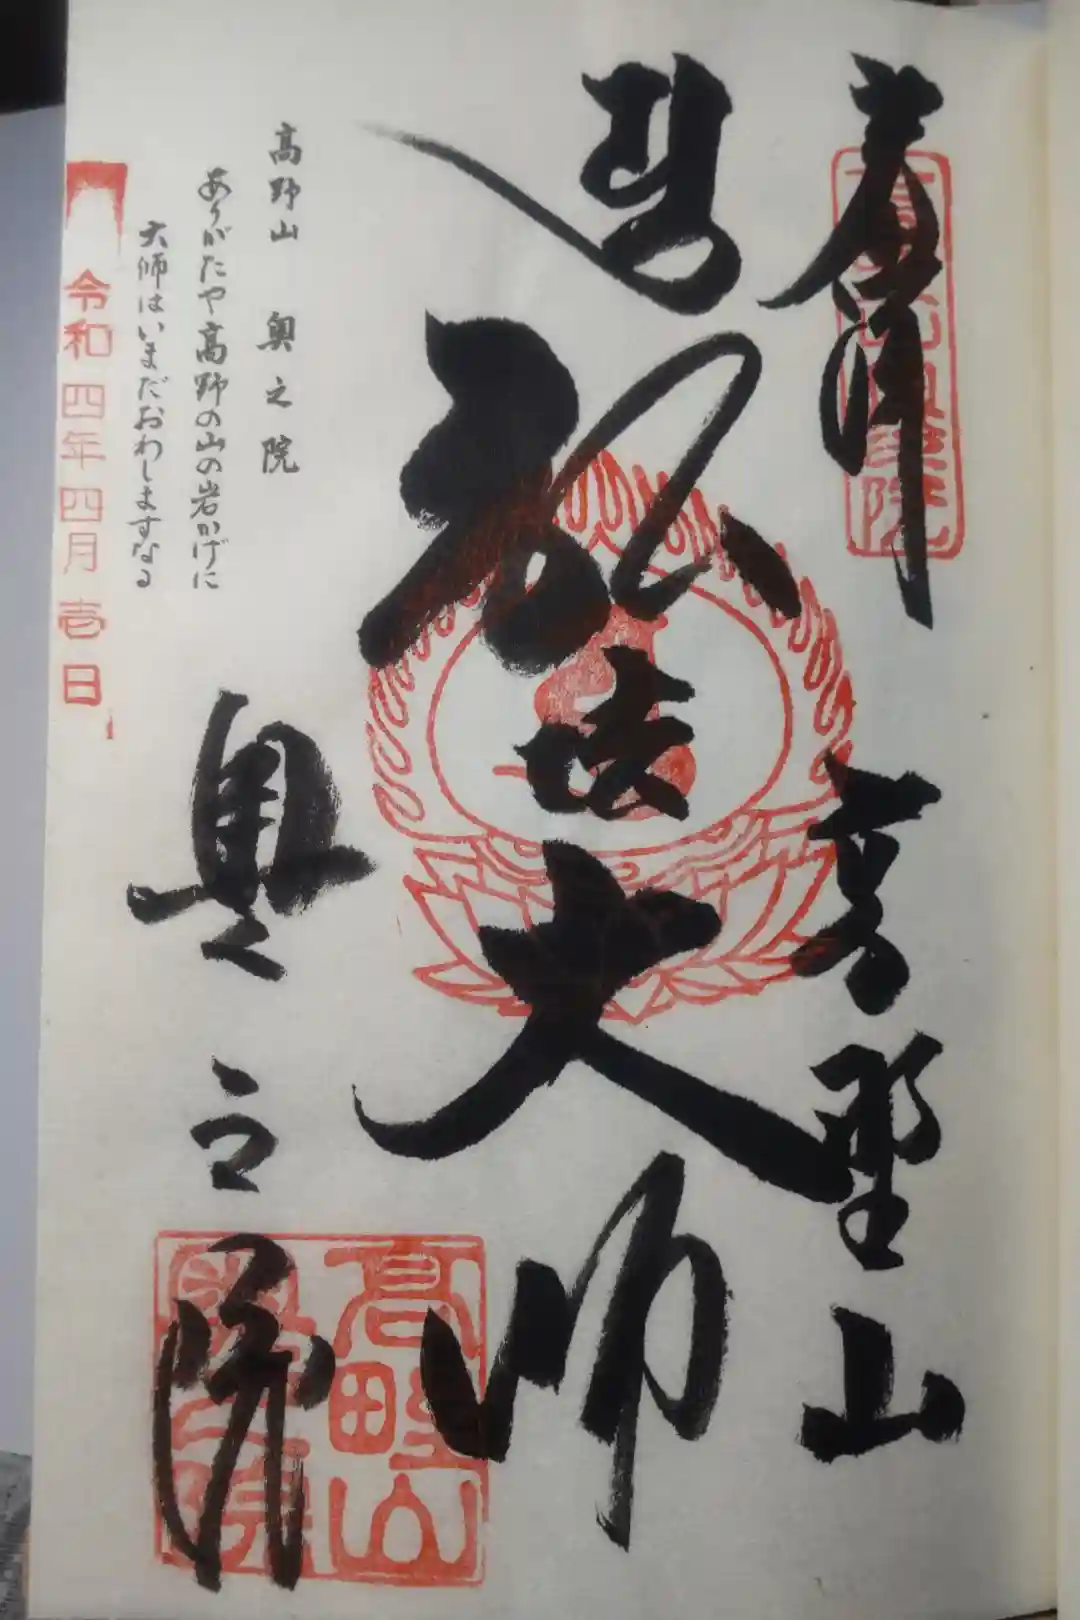 奉拝
高野山
弘法大師
高野山　奥之院
ありがたや高野の山の岩かげに
大師はいまだおわしますなる
奥之院
高野山
奥之院
令和四年四月壱日